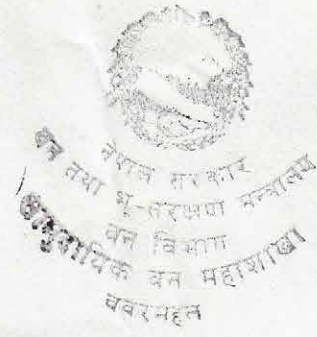 नेपाल सरकार
वन तथा भू-संरक्षण मन्त्रालय
वन विभाग
सामुदायिक वन महाशाखा
बबरमहल